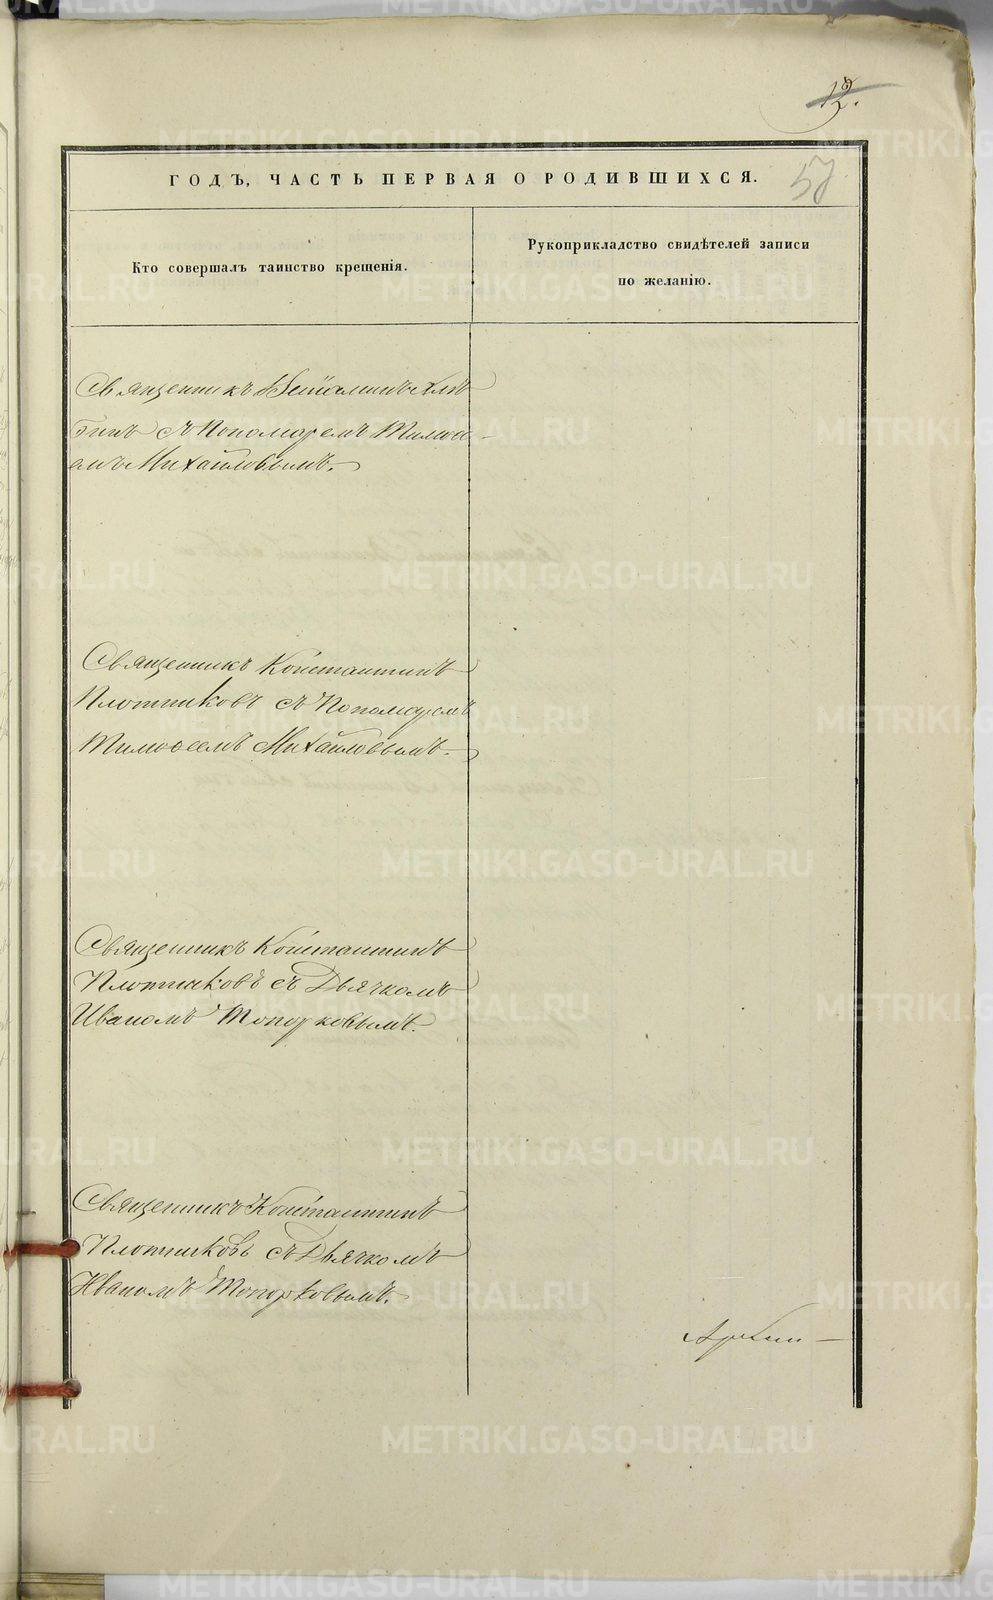 12.
57
ГОДЪ, ЧАСТЬ ПЕРВАЯ О РОДИВШИХСЯ.
Кто совершалъ таинство крещенія.
Рукоприкладство свидѣтелей записи
по желанію.
Священникъ Веніаминъ
съ Пономаремъ Тимоѳе-
емъ Михайловымъ.
Священникъ Константинъ
Плотниковъ съ Пономаремъ
Тимоѳеемъ Михайловымъ.
Священникъ Константинъ
Плотниковъ съ Дьячкомъ
Иваномъ Топорковымъ.
Священникъ Константинъ
Плотниковъ съ Дьячкомъ
Иваномъ Топорковымъ.
METRIKI.GASO-URAL.RU